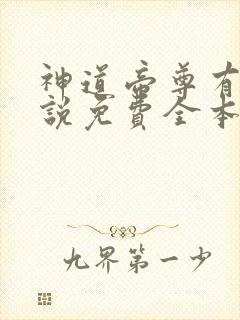 神道帝尊有
說免費全本
九界第一少